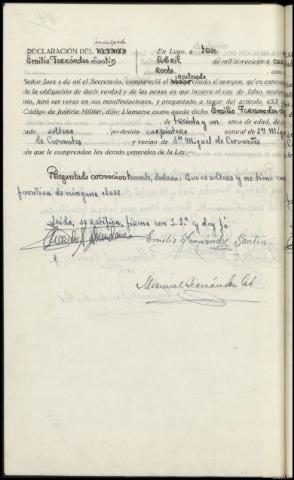 inculpado
DECLARACIÓN DEL TESTIGO En Lugo, a tres
Emilio Fernández Santín Abril de mil novecientos cua
renta, inculpado
Señor Juez y de mí el Secretario, compareció el al margen, quien en
la obligación de decir verdad y de las penas en que incurre el reo de falso testim
rio, juró ser veraz en sus manifestaciones, y preguntado a tenor del artículo 453
Código de Justicia Militar, dijo: Llamarse como queda dicho Emilio Fernandez
de treinta y años de edad, de
tado soltero, profesión carpintero natural de Sn Mig
de Corvantes y vecino de Sn Miguel de Corvantes
sin que le comprendan las demás generales de la Ley.
Preguntado convenientemente, declara: Que es soltero y no tiene
familiar de ninguna clase
Leido, se ratifica, firma con S.Sª y doy fé
Emilio Fernandez Santin
Manuel Fernández Cid